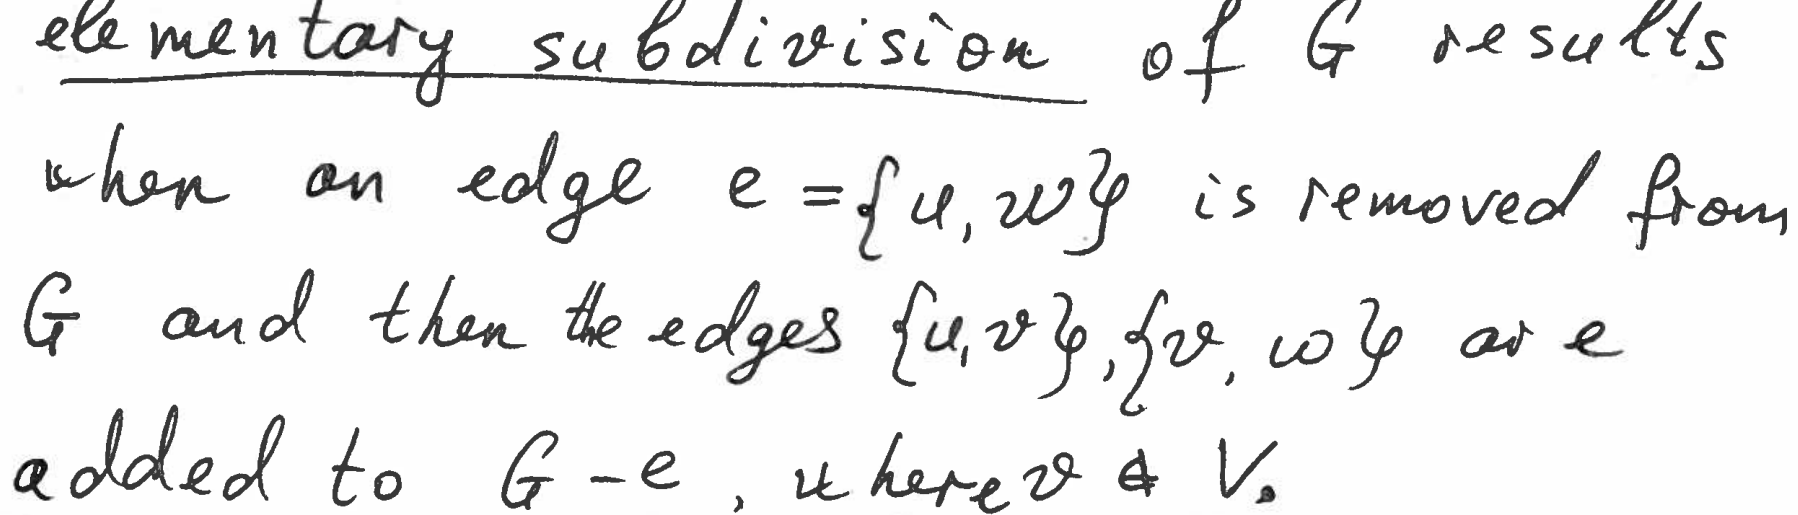 elementary subdivision of G results
when an edge e = {u, w} is removed from
G and then the edges {u, v}, {v, w} are
added to G - e, where v ∉ V.